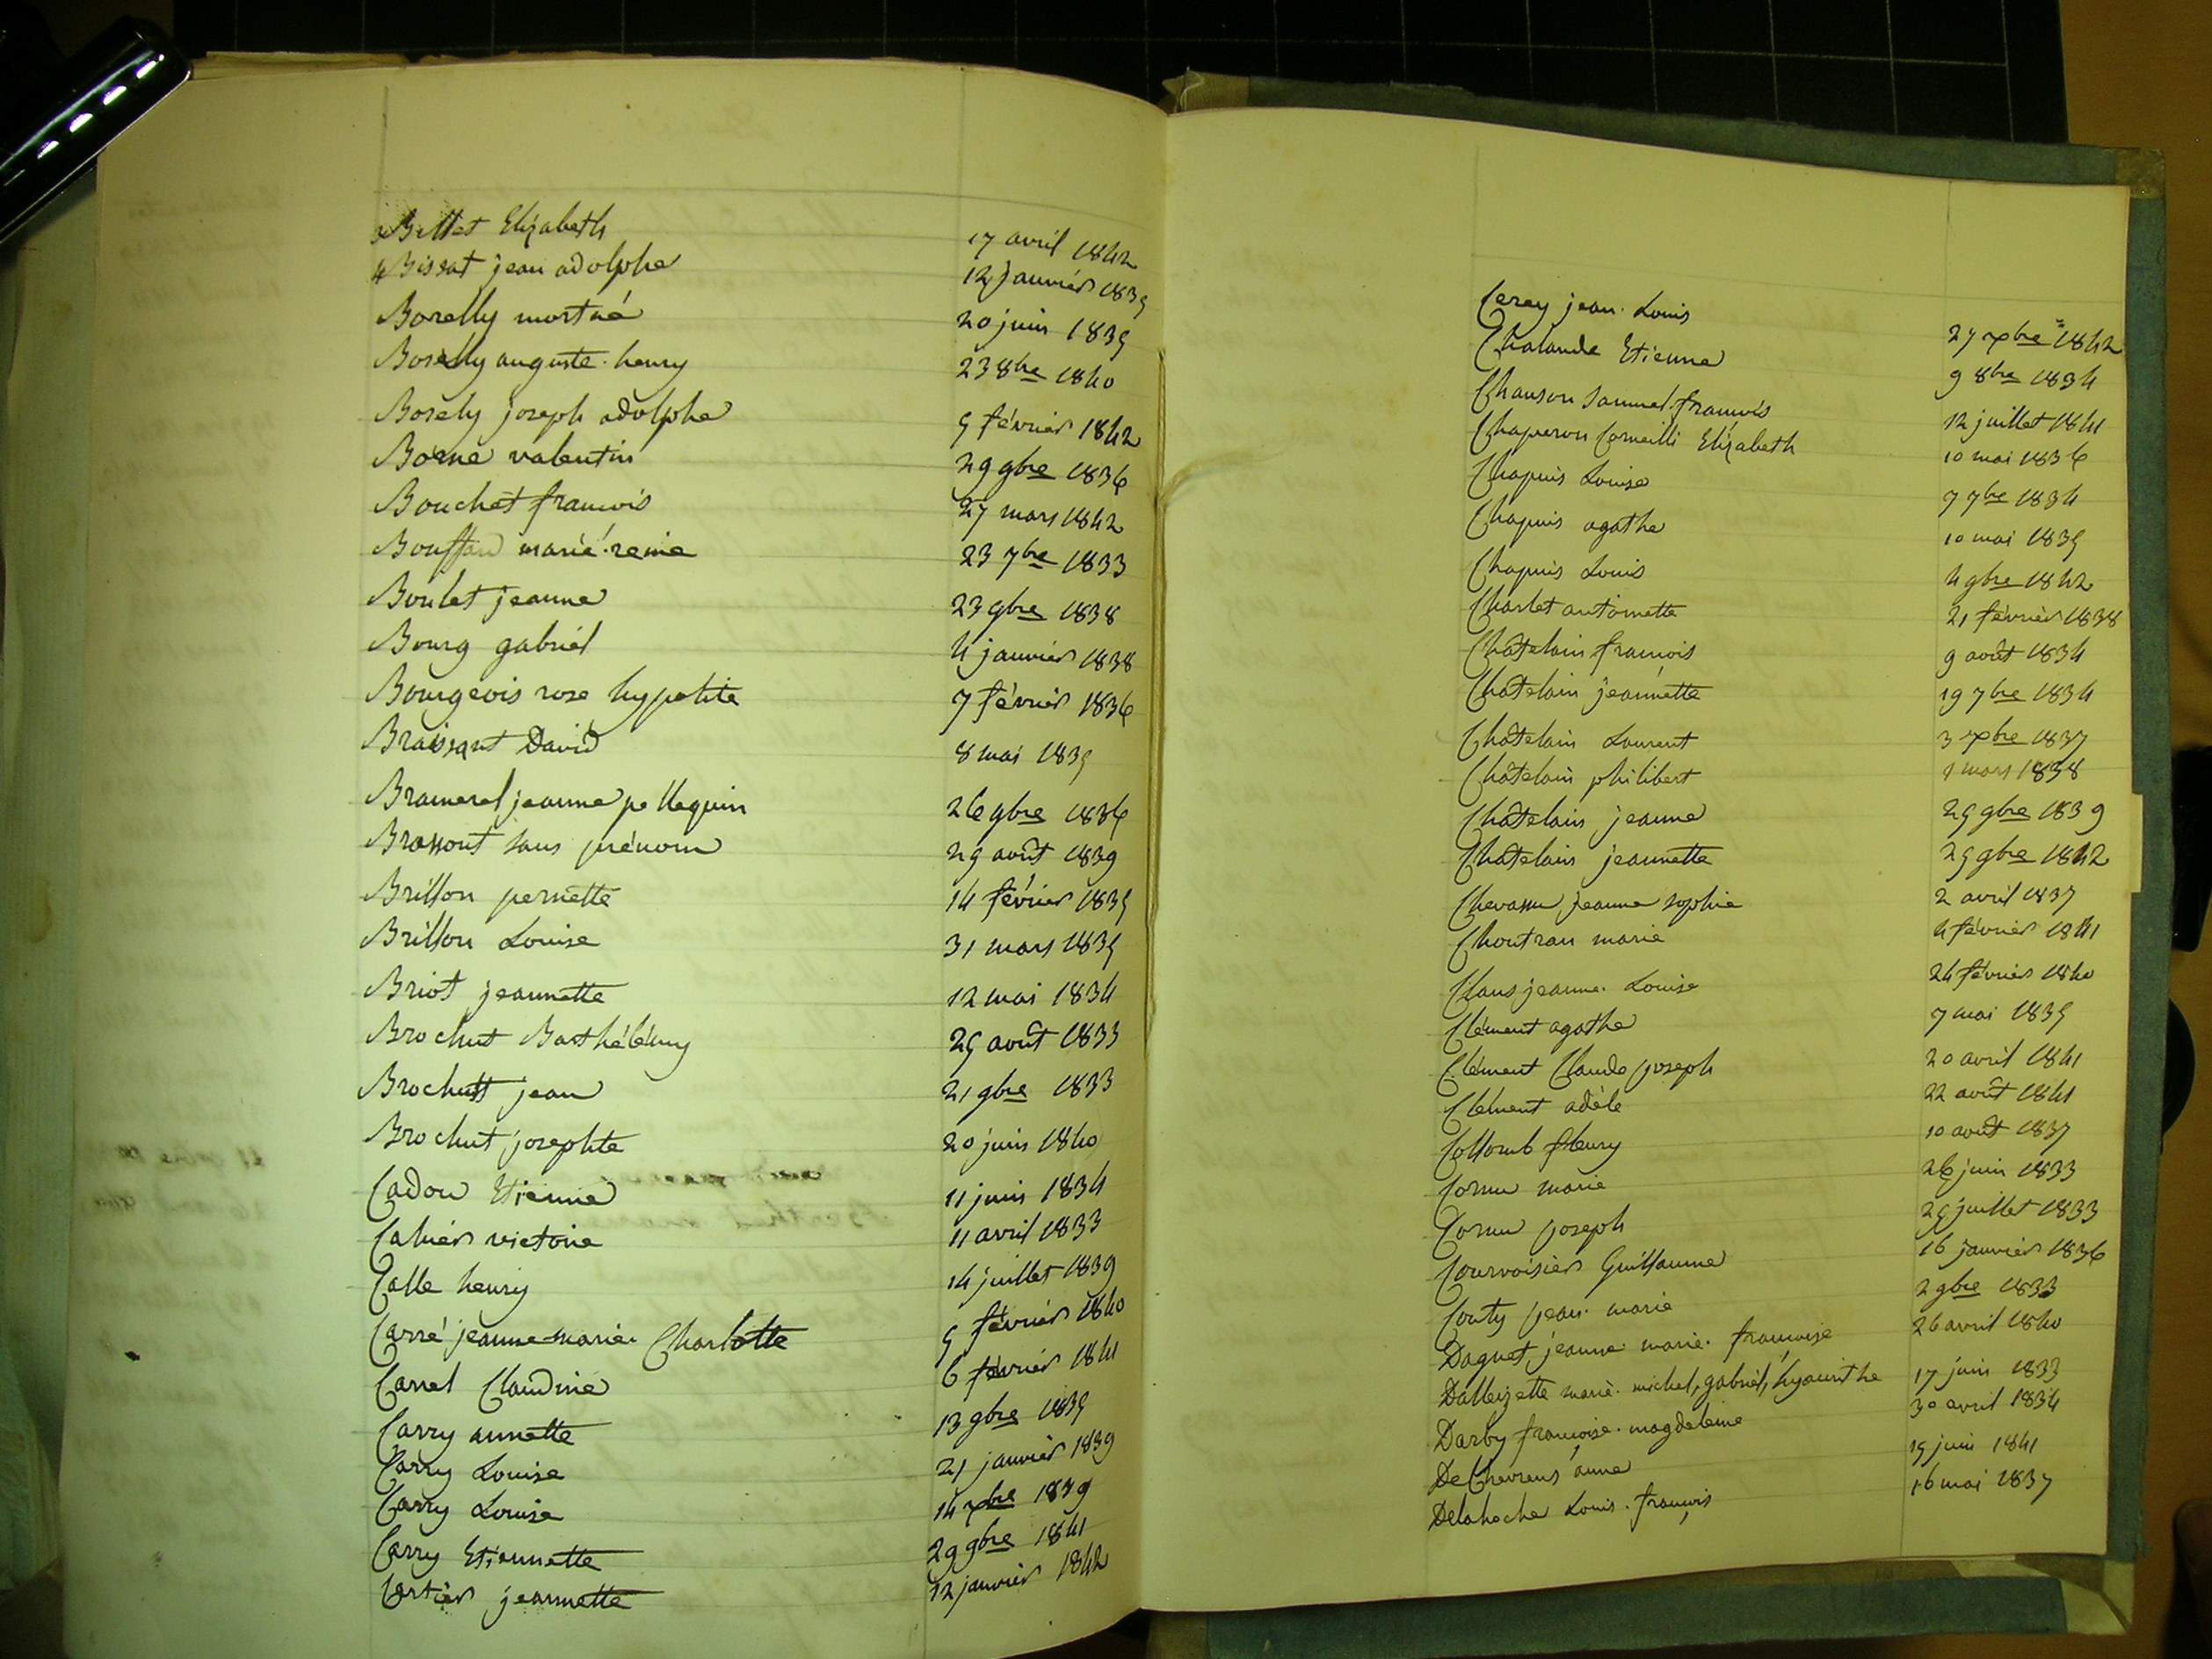 Billet Elizabeth 17 avril 1842
Bissat jean adolphe 12 janvier 1835
Borelly mortné 20 juin 1835
Borelly auguste. henry 23 8bre 1840
Borely joseph adolphe 5 février 1842
Borne valentin 29 9bre 1836
Bouchet francois 27 mars 1842
Bouffard marie. reine 23 7bre 1833
Boulet jeanne 23 9bre 1838
Bourg gabriel 4 janvier 1838
Bourgeois rose hypolite 7 février 1836
Braissant David 8 mai 1835
Bramerel jeanne pellequin 26 9bre 1836
Brassont sans prénom 29 août 1839
Brillon pernette 14 février 1835
Brillon Louise 31 mars 1835
Briot jeannette 12 mai 1834
Brochut Barthélémy 25 août 1833
Brochutt jean 21 9bre 1833
Brochut josephte 20 juin 1840
Cadou Etienne 11 juin 1834
Cahier victoire 11 avril 1833
Calle henry 14 juillet 1839
Carré jeanne-marie. Charlotte 5 février 1840
Carrel Claudine 6 février 1841
Carry annette 13 9bre 1835
Carry Louise 21 janvier 1839
Carry Louise 14 xbre 1839
Carry Etiennette 29 9bre 1841
Cartier jeannette 12 janvier 1842
Cerey jean. Louis 27 xbre 1842
Chalande Etienne 9 8bre 1834
Chanson samuel. francois 12 juillet 1841
Chaperon Corneilli Elizabeth 10 mai 1836
Chapuis Louise 7 7bre 1834
Chapuis agathe 10 mai 1835
Chapuis Louis 4 9bre 1842
Charlet antoinette 21 février 1838
Chatelain francois 9 août 1834
Chatelain jeannette 19 7bre 1834
Chatelain Laurent 3 xbre 1837
Chatelain philibert 1 mars 1838
Chatelain jeanne 25 9bre 1839
Chatelain jeannette 25 9bre 1842
Chevassu jeanne sophie 2 avril 1837
Choutran marie 4 février 1841
Claus jeanne. Louise 24 février 1840
Clément agathe 7 mai 1835
Clément Claude joseph 20 avril 1841
Clément adèle 22 août 1841
Collomb fleury 10 août 1837
Cornu marie 26 juin 1833
Cornu joseph 25 juillet 1833
Courvoisier Guillaume 16 janvier 1836
Couty jean. marie 2 9bre 1833
Daguet jeanne marie. francoise 26 avril 1840
Dalleizette marie. michel, gabriel, hyacinthe 17 juin 1833
Darby francoise. magdeleine 30 avril 1834
DeChevrens anne 15 juin 1841
Delahoche Louis. françois 16 mai 1837